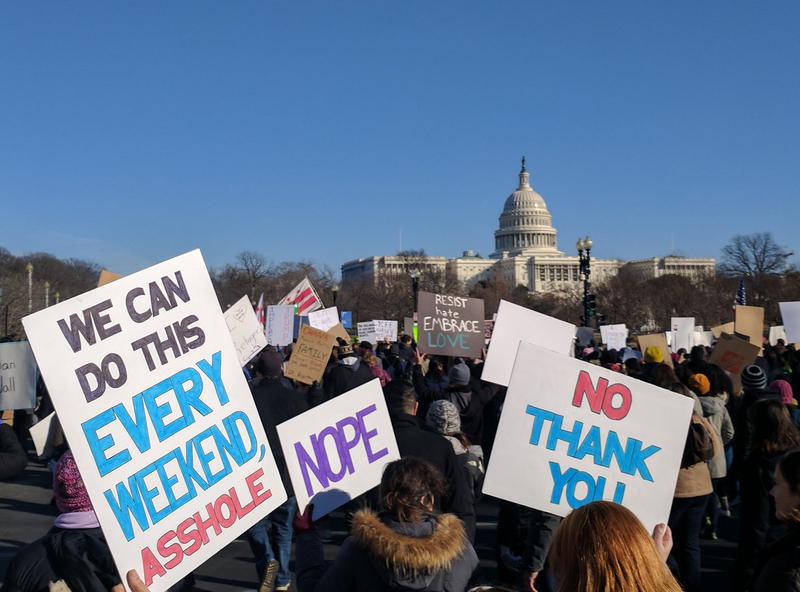 WE CAN
DO THIS
EVERY
WEEKEND,
ASSHOLE
NOPE
RESIST
hate
EMBRACE
LOVE
NO
THANK
YOU
FAMILY